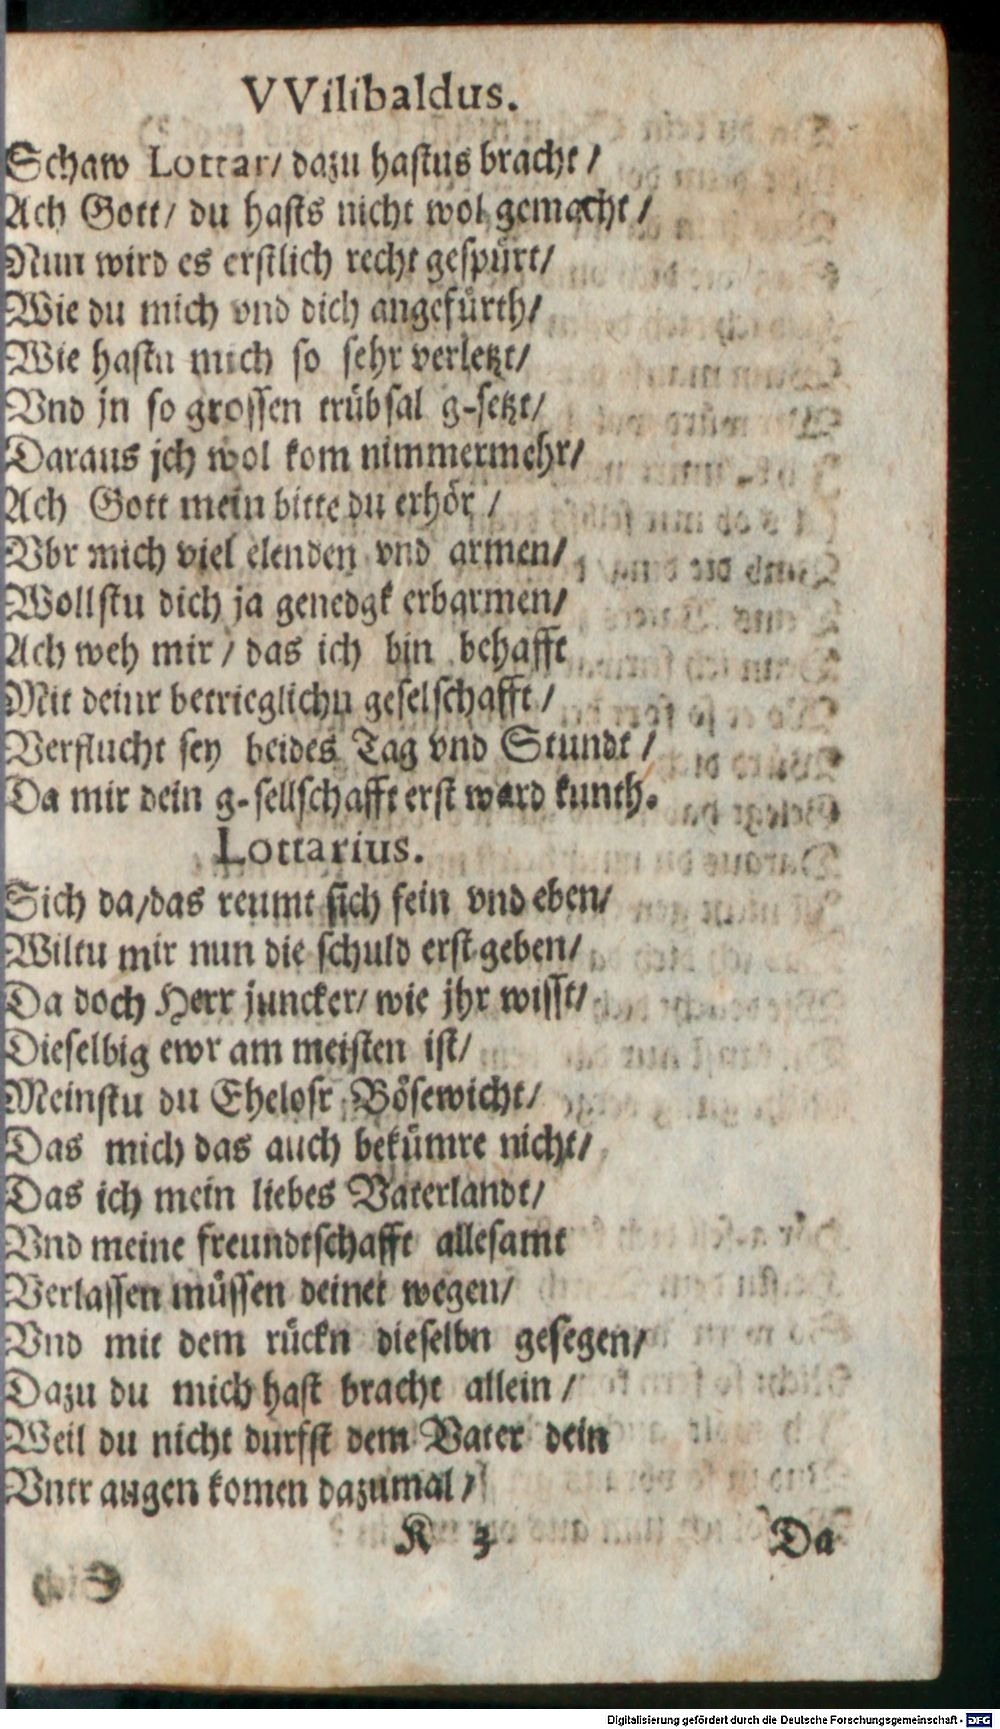 VVilibaldus.
Schaw Lottar/ dazu hastus bracht/
Ach Gott/ du hasts nicht wol gemacht/
Nun wird es erstlich recht gespürt/
Wie du mich vnd dich angefürth/
Wie hastu mich so sehr verletzt/
Vnd jn so grossen trübsal g-setzt/
Daraus jch wol kom nimmermehr/
Ach Gott mein bitte du erhör/
Vbr mich viel elenden vnd armen/
Wollstu dich ja genedgk erbarmen/
Ach weh mir/ das ich bin behafft
Mit deinr betrieglichn geselschafft/
Verflucht sey beides Tag vnd Stundt/
Da mir dein g-sellschafft erst ward kunth.
Lottarius.
Sich da/das reumt sich fein vnd eben/
Wiltu mir nun die schuld erst geben/
Da doch Herr juncker/ wie jhr wisst/
Dieselbig ewr am meisten ist/
Meinstu du Ehelosr Bösewicht/
Das mich das auch bekümre nicht/
Das ich mein liebes Vaterlandt/
Vnd meine freundtschafft allesamt
Verlassen müssen deinet wegen/
Vnd mit dem rückn dieselbn gesegen/
Dazu du mich hast bracht allein/
Weil du nicht durfst dem Vater dein
Vntr augen komen dazumal/
K 3 Da
Digitalisierung gefördert durch die Deutsche Forschungsgemeinschaft - DFG